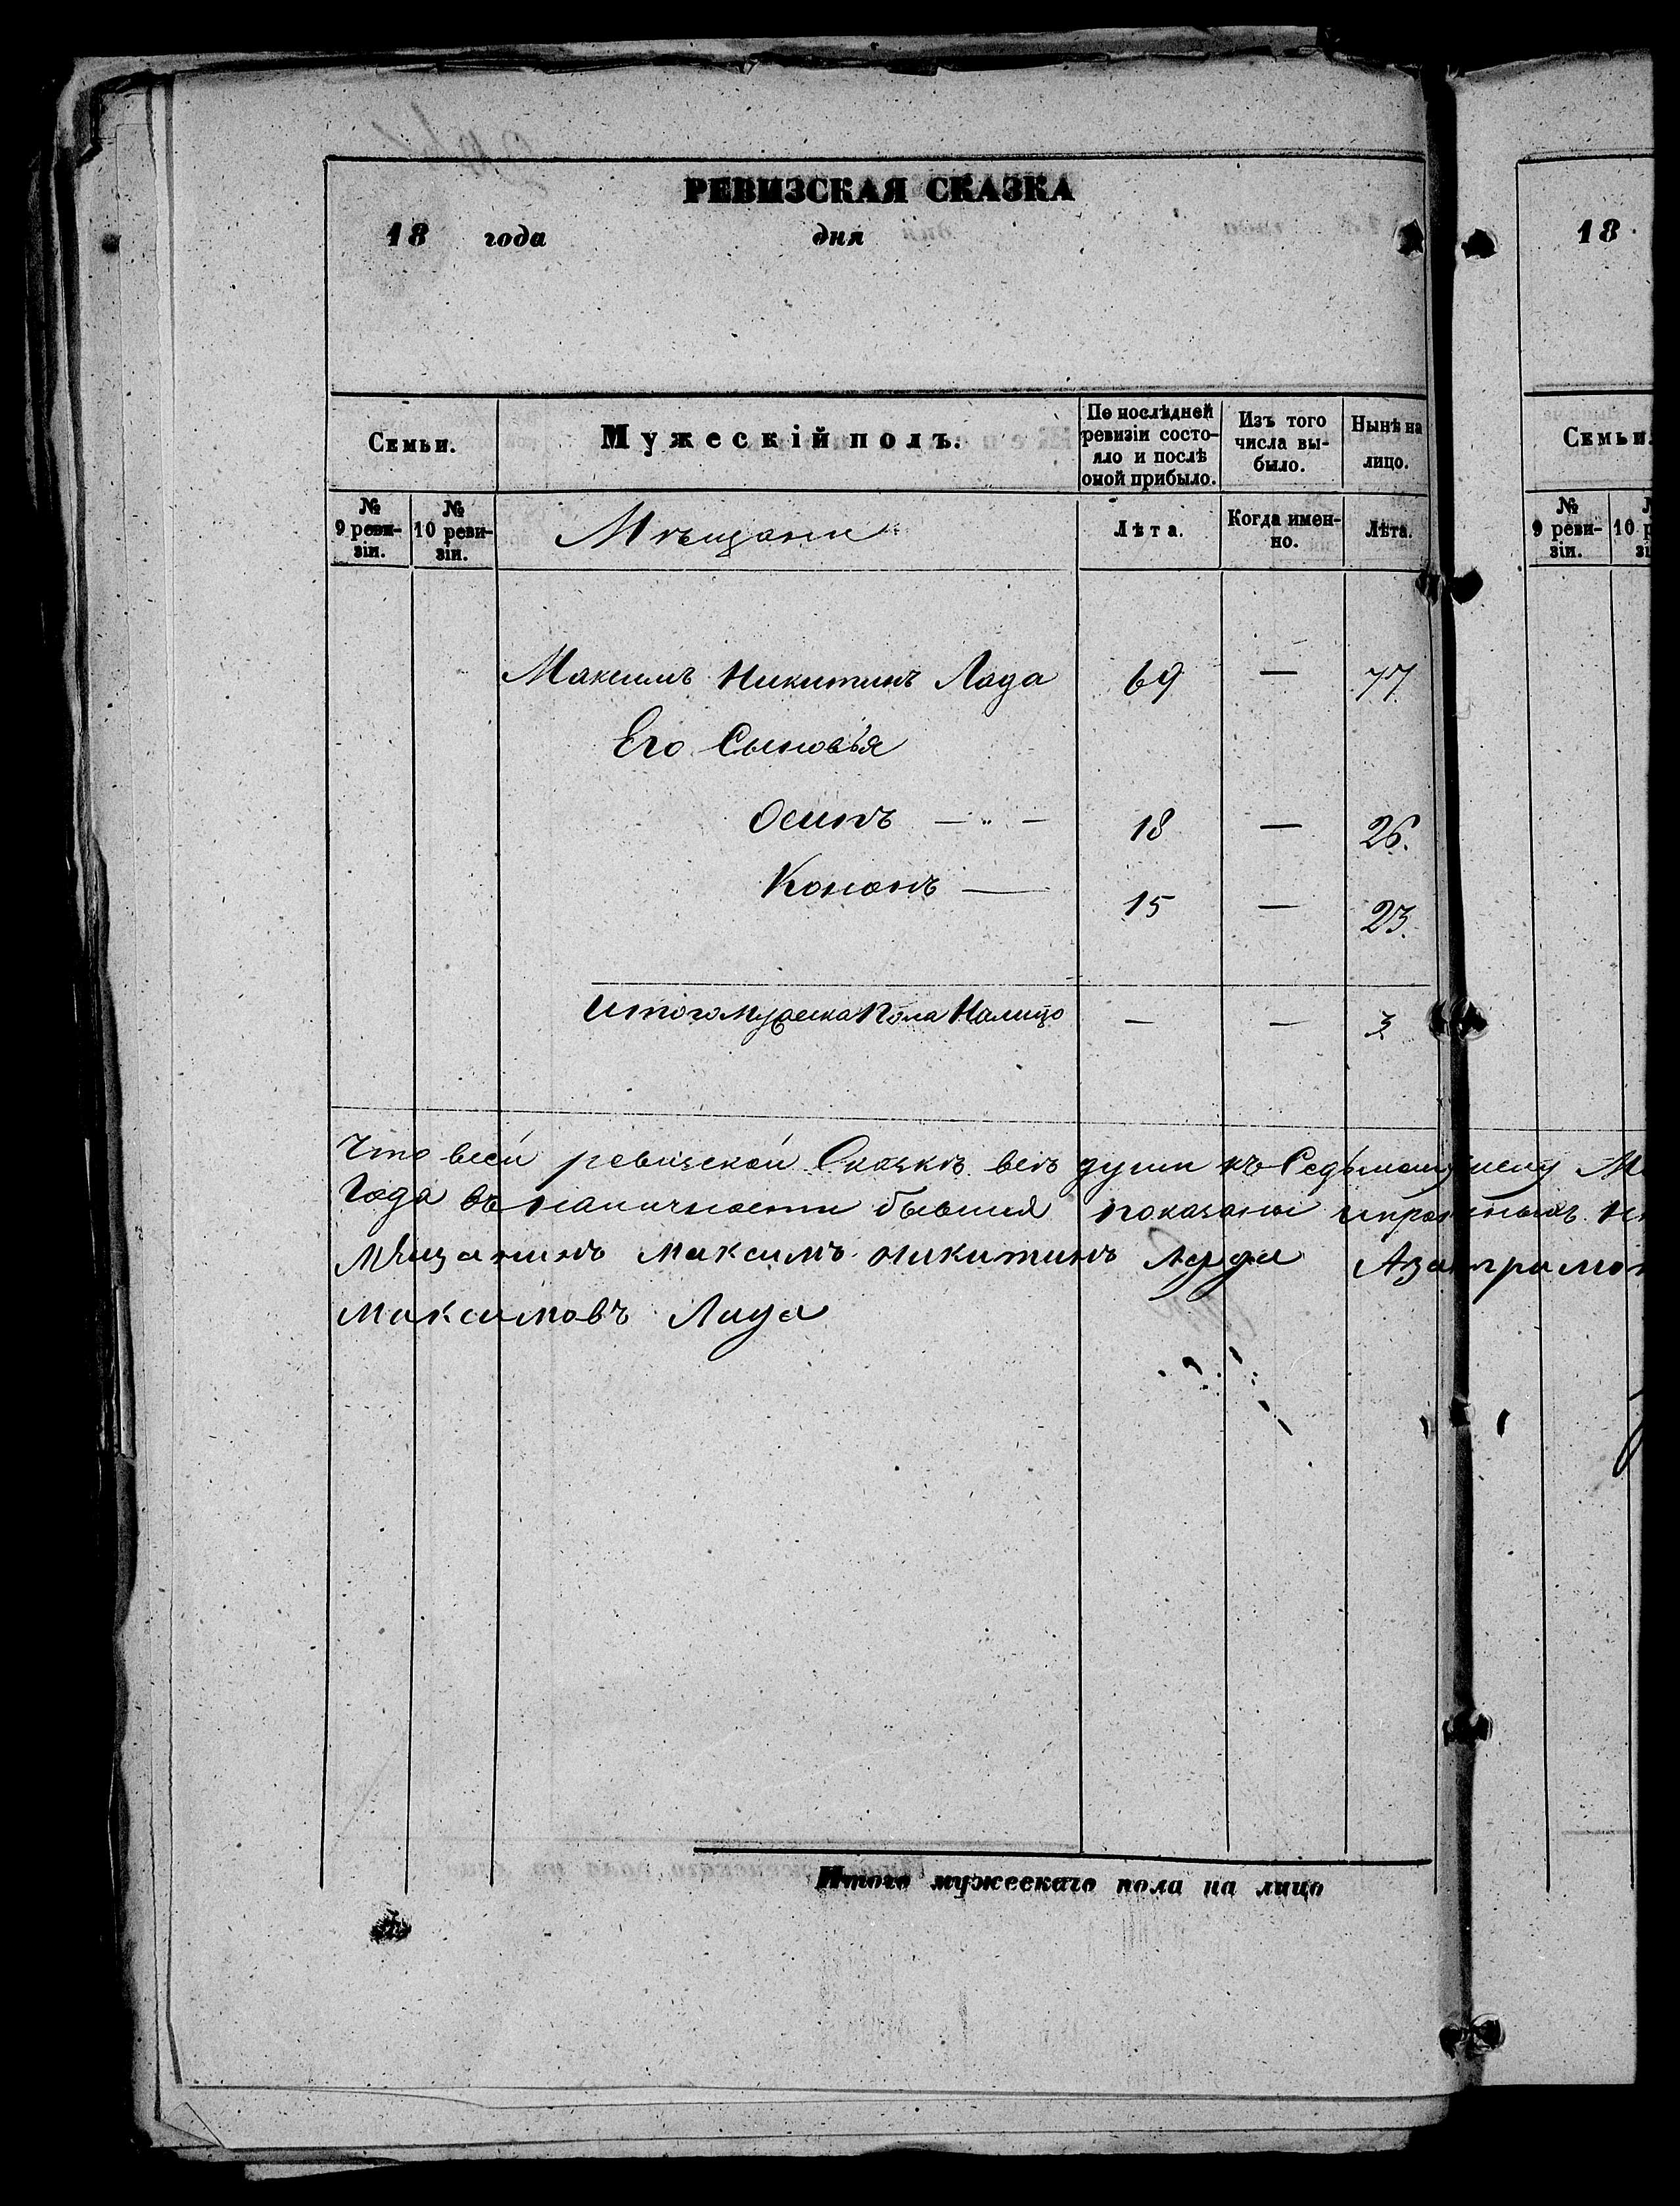 РЕВИЗСКАЯ СКАЗКА
18 года дня
Семьи.
Мужескій полъ.
По послѣдней ревизіи состо-
яло и послѣ
оной прибыло.
Изъ того
числа вы-
было.
Нынѣ на
лицо.
№
9 реви-
зіи.
№
10 реви-
зіи.
Мѣщани
Лѣта.
Когда имен-
но.
Лѣта.
Максимъ Никитинъ Лада 69 — 77
Его Сыновья
Осипъ — „ — 18 — 26.
Кононъ — 15 — 23.
Итого мужеска Пола Налицо — — 3
Что всей ревизской Сказкѣ всѣ души къ
Года въ наличности бывшия показаны
Мѣщанинъ Максимъ Никитинъ Лада
Максимовъ Лада
Итого мужескаго пола на лицо
18
Семьи
№
9 реви-
зіи.